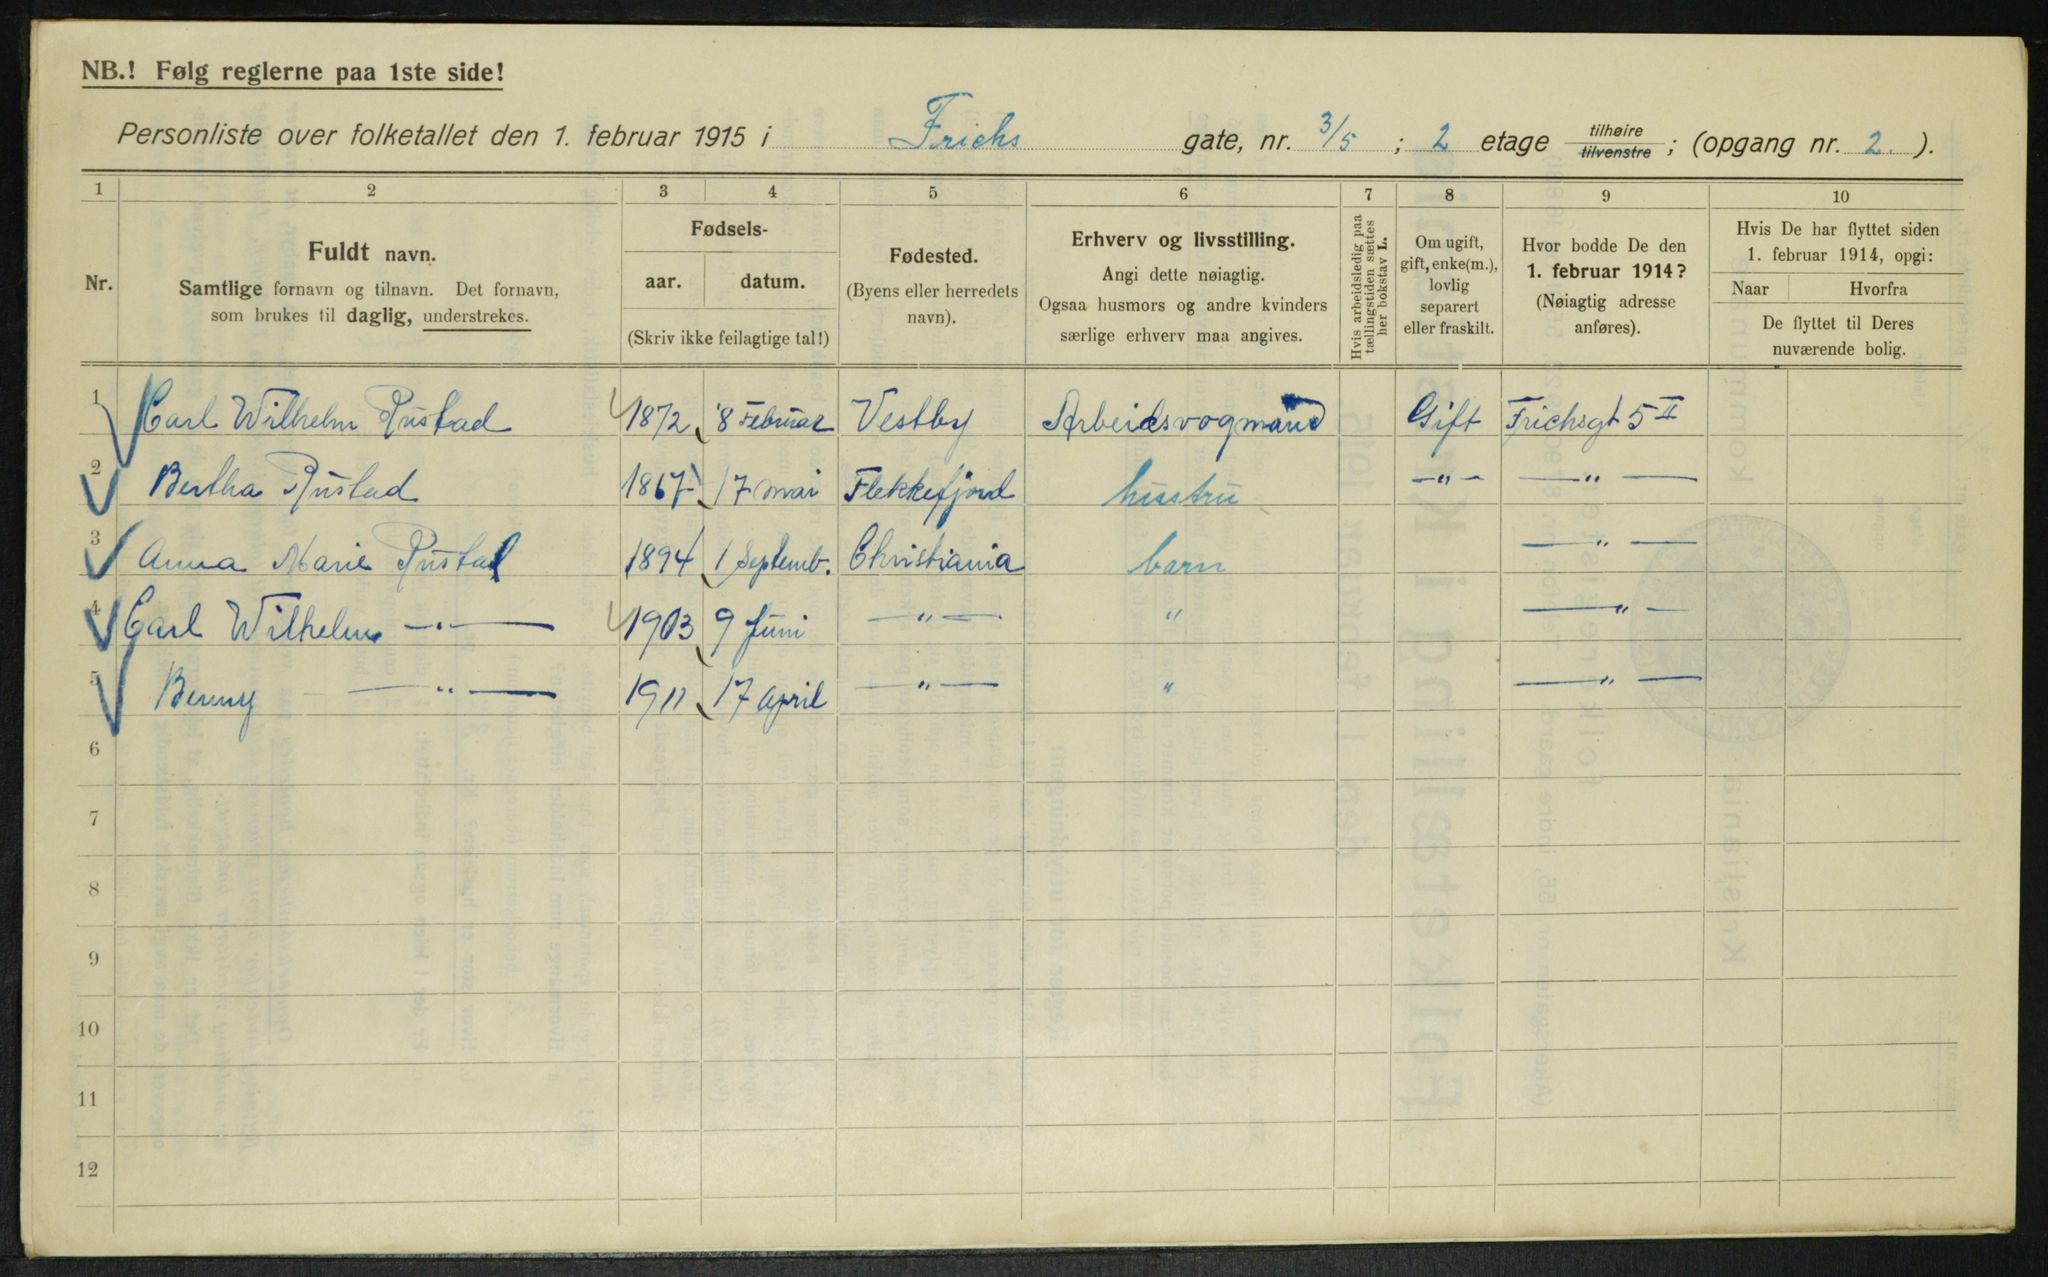 NB.! Følg reglerne paa 1ste side!
Personliste over folketallet den 1. februar 1915 i Frichs gate, nr. 3/5 ; 2 etage tilhøire tilvenstre ; (opgang nr. 2. ).
1 2 3 4 5 6 7 8 9 10
Nr.
Fuldt navn.
Samtlige fornavn og tilnavn. Det fornavn,
som brukes til daglig, understrekes.
Fødsels-
aar. datum.
(Skriv ikke feilagtige tal!)
Fødested.
(Byens eller herredets
navn).
Erhverv og livsstilling.
Angi dette nøiagtig.
Ogsaa husmors og andre kvinders
særlige erhverv maa angives.
Hvis arbeidsledig paa
tællingstiden sættes
her bokstav L.
Om ugift,
gift, enke(m.),
lovlig
separert
eller fraskilt.
Hvor bodde De den
1. februar 1914?
(Nøiagtig adresse
anføres).
Hvis De har flyttet siden
1. februar 1914, opgi:
Naar Hvorfra
De flyttet til Deres
nuværende bolig.
1 Carl Wilhelm Rustad 1872 8 Februar Vestby Arbeidsvogmand Gift Frichsgt 5 II
2 Bertha Rustad 1867 17 mai Flekkefjord hustru —"— —"—
3 Anna Marie Rustad 1894 1 Septemb. Christiania barn —"—
4 Carl Wilhelm —"— 1903 9 Juni —"— " —"—
5 Benny —"— 1911 17 april —"— " —"—
6
7
8
9
10
11
12